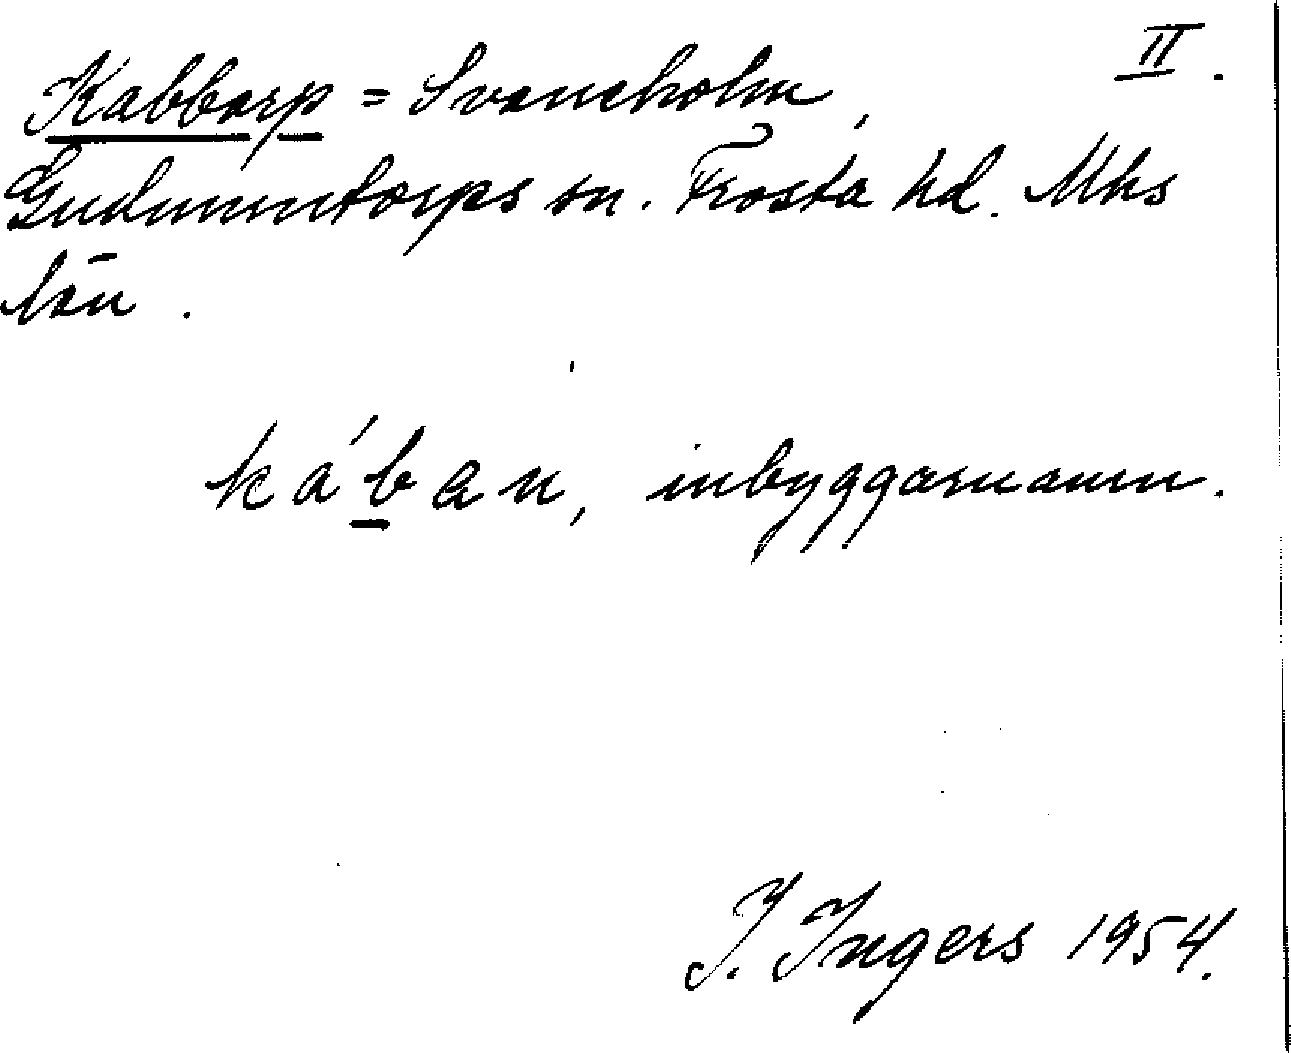 II.
Kabbarp = Svaneholm,
Gudmuntorps sn. Frosta hd. Mhs
län.
kában, inbyggarnamn.
I. Ingers 1954.